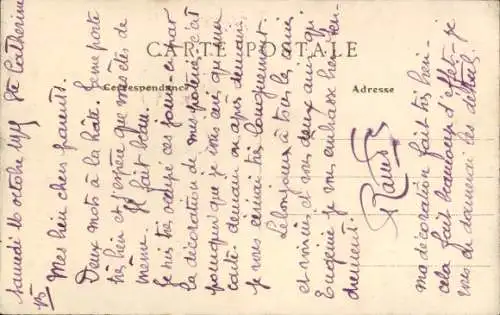 CARTE POSTALE
Correspondance
Adresse
Samedi 16 octobre 1915 Ste Catherine
Mes bien chers parents.
Deux mots à la hâte. Je me porte
très bien et j'espère que vous êtes de
même. Il fait beau.
Je suis très occupé ces jours-ci par
la décoration de mes poteries, c'est
pourquoi que je vous écris qu'une
carte demain ou après demain
je vous écrirai très longuement.
Le bonjour à tous les amis
et voisins et vous deux ainsi qu'
Eugénie je vous embrasse bien ten-
drement.
ma décoration fait très bien
cela fait beaucoup d'effet, je
vous en donnerai les détails.